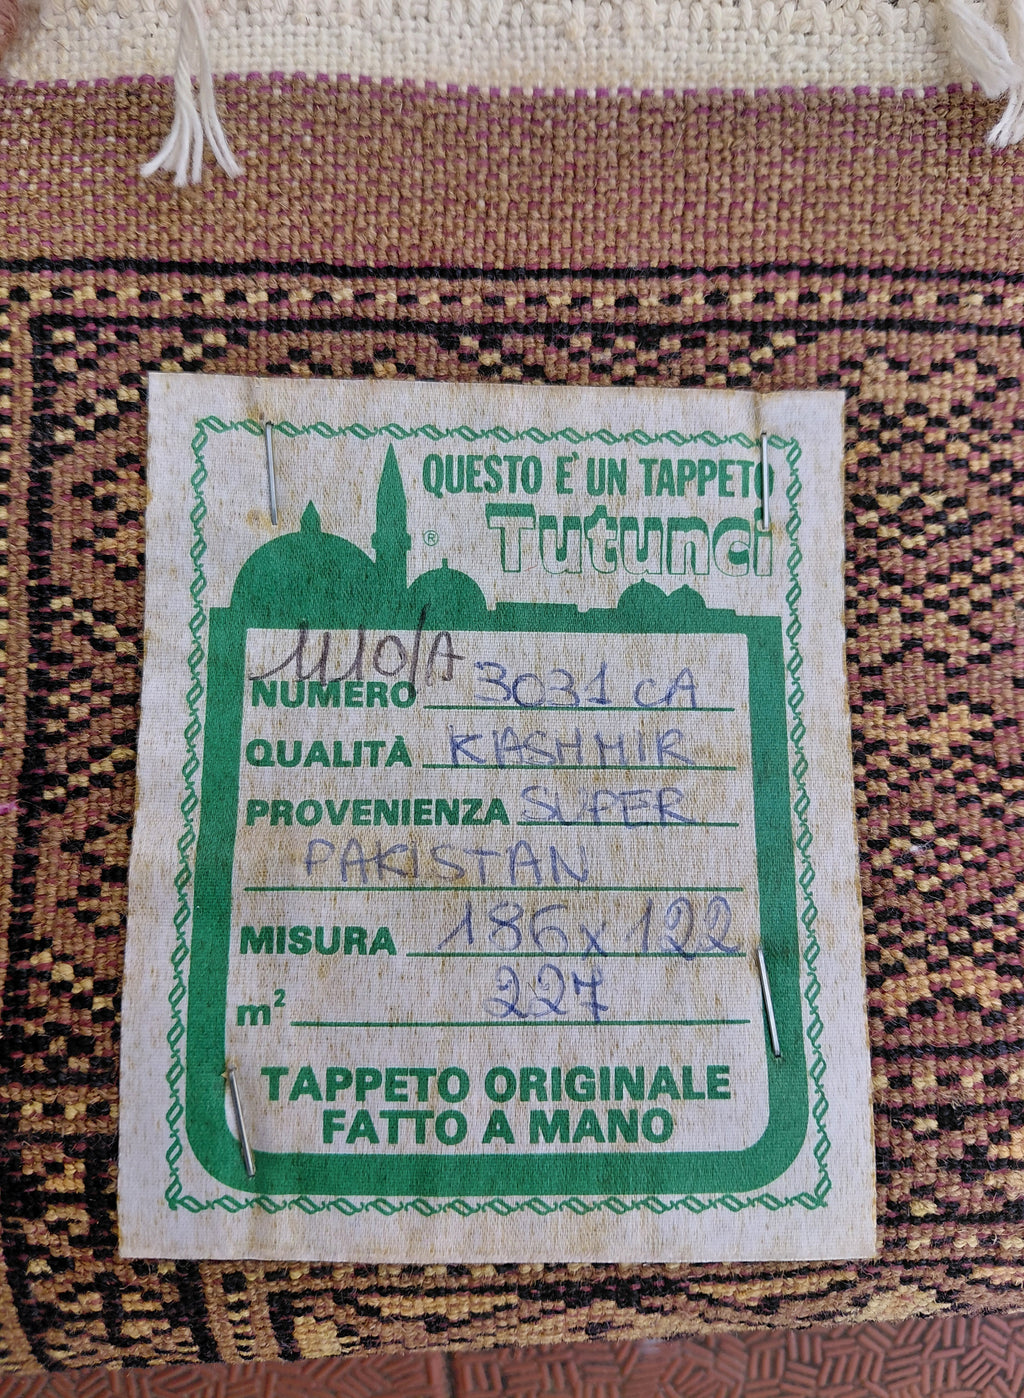 QUESTO E' UN TAPPETO
Tutunci
®
1110/A
NUMERO 3031 CA
QUALITÀ KASHMIR
PROVENIENZA SUPER
PAKISTAN
MISURA 186x122
m² 227
TAPPETO ORIGINALE
FATTO A MANO